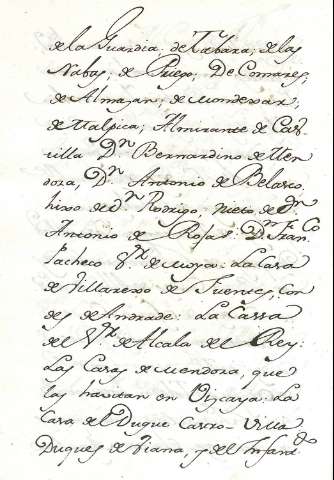 de la Guardia; de Tabara; de las
Nabas; de Priego, De Comares;
de Almazan; de Mondexar;
de Malpica; Almirante de Cas-
tilla Dn Bernardino de Men
doza, Dn Antonio de Belasco
hixo de Dn Rodrigo, Nieto de Dn
Antonio de Rojas Dn Franco
Pacheco Sr de Moya: La Casa
de Villarexo de Fuentes, Con
des de Andrade: La Cassa
del de Alcala del Rey:
Las Casas de Mendoza, que
las havitan en Vizcaya: La
Casa del Duque Castro-Villa
Duques de Viana, y del Infantdo